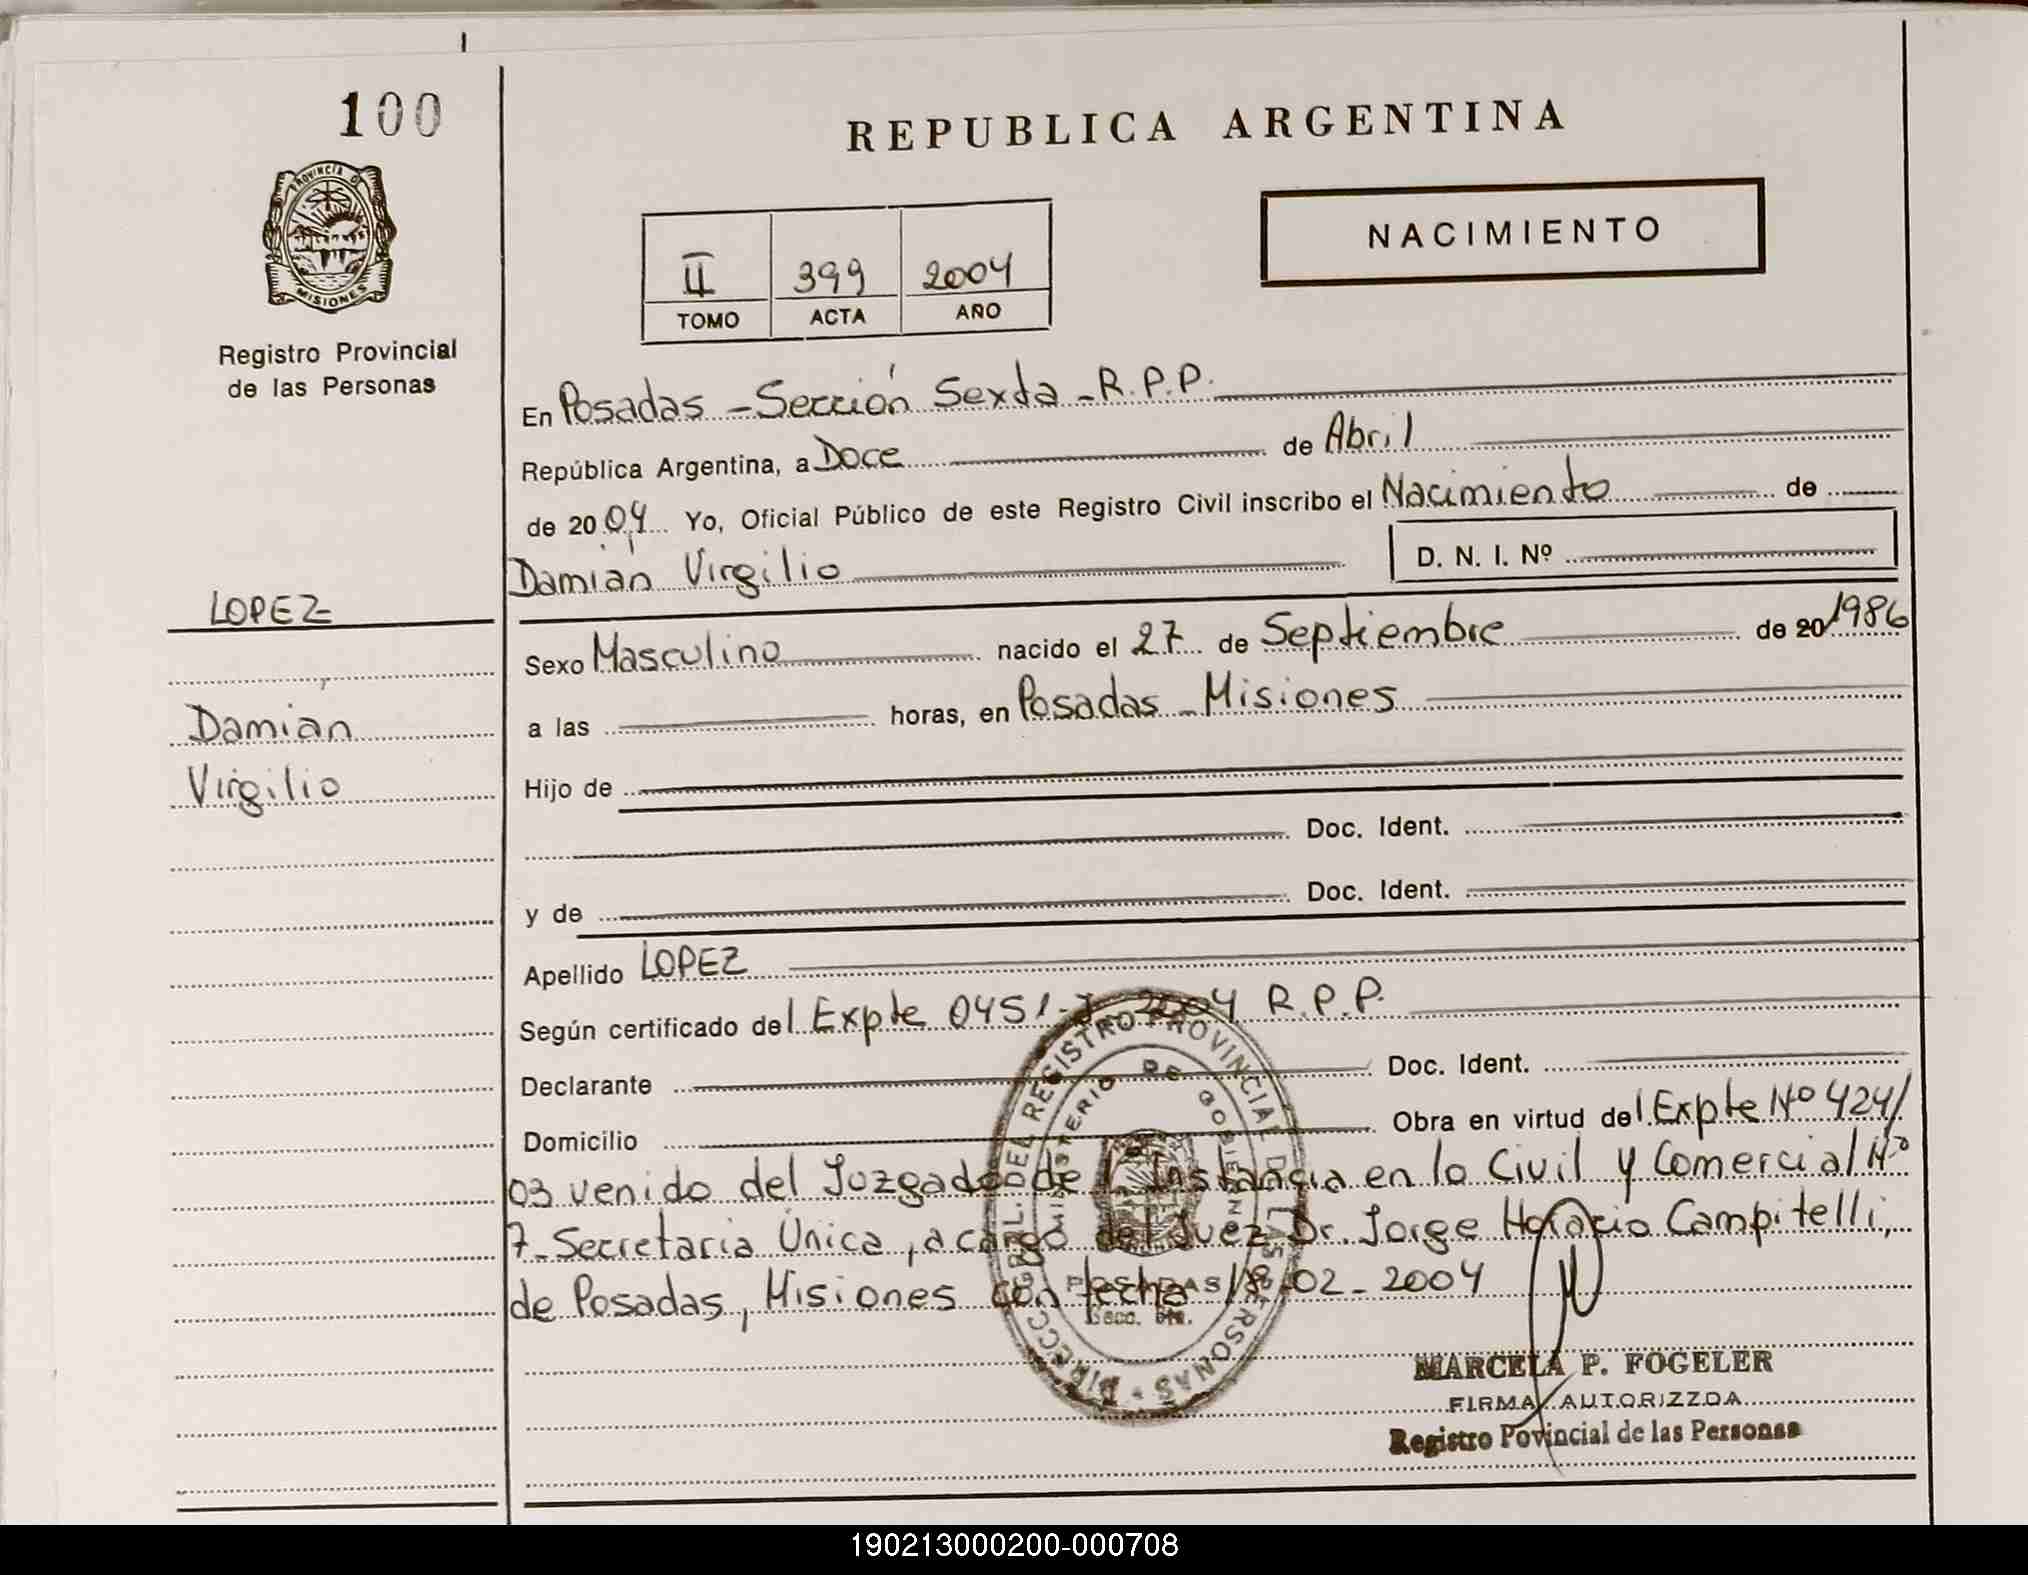 100
PROVINCIA DE
MISIONES
Registro Provincial
de las Personas
REPUBLICA ARGENTINA
NACIMIENTO
II 399 2004
TOMO ACTA AÑO
En Posadas - Sección Sexta - R.P.P.
República Argentina, a Doce de Abril
de 2004 Yo, Oficial Público de este Registro Civil inscribo el Nacimiento de
Damián Virgilio D. N. I. Nº
LOPEZ
Damián
Virgilio
Sexo Masculino nacido el 27 de Septiembre de 20 1986
a las horas, en Posadas - Misiones
Hijo de
Doc. Ident.
y de Doc. Ident.
Apellido LOPEZ
Según certificado del Expte 0451- 2004 R.P.P.
Declarante Doc. Ident.
Domicilio Obra en virtud del Expte Nº 424/
03 venido del Juzgado de 1º Instancia en lo Civil y Comercial Nº
7- Secretaria Única, a cargo del Juez Dr. Jorge Horacio Campitelli,
de Posadas, Misiones con fecha 18-02-2004
DIRECC. GRAL. DEL REGISTRO PROVINCIAL DE LAS PERSONAS
MINISTERIO DE GOBIERNO
POSADAS
Secc. 6ta.
MARCELA P. FOGELER
FIRMA AUTORIZZDA
Registro Povincial de las Personas
190213000200-000708